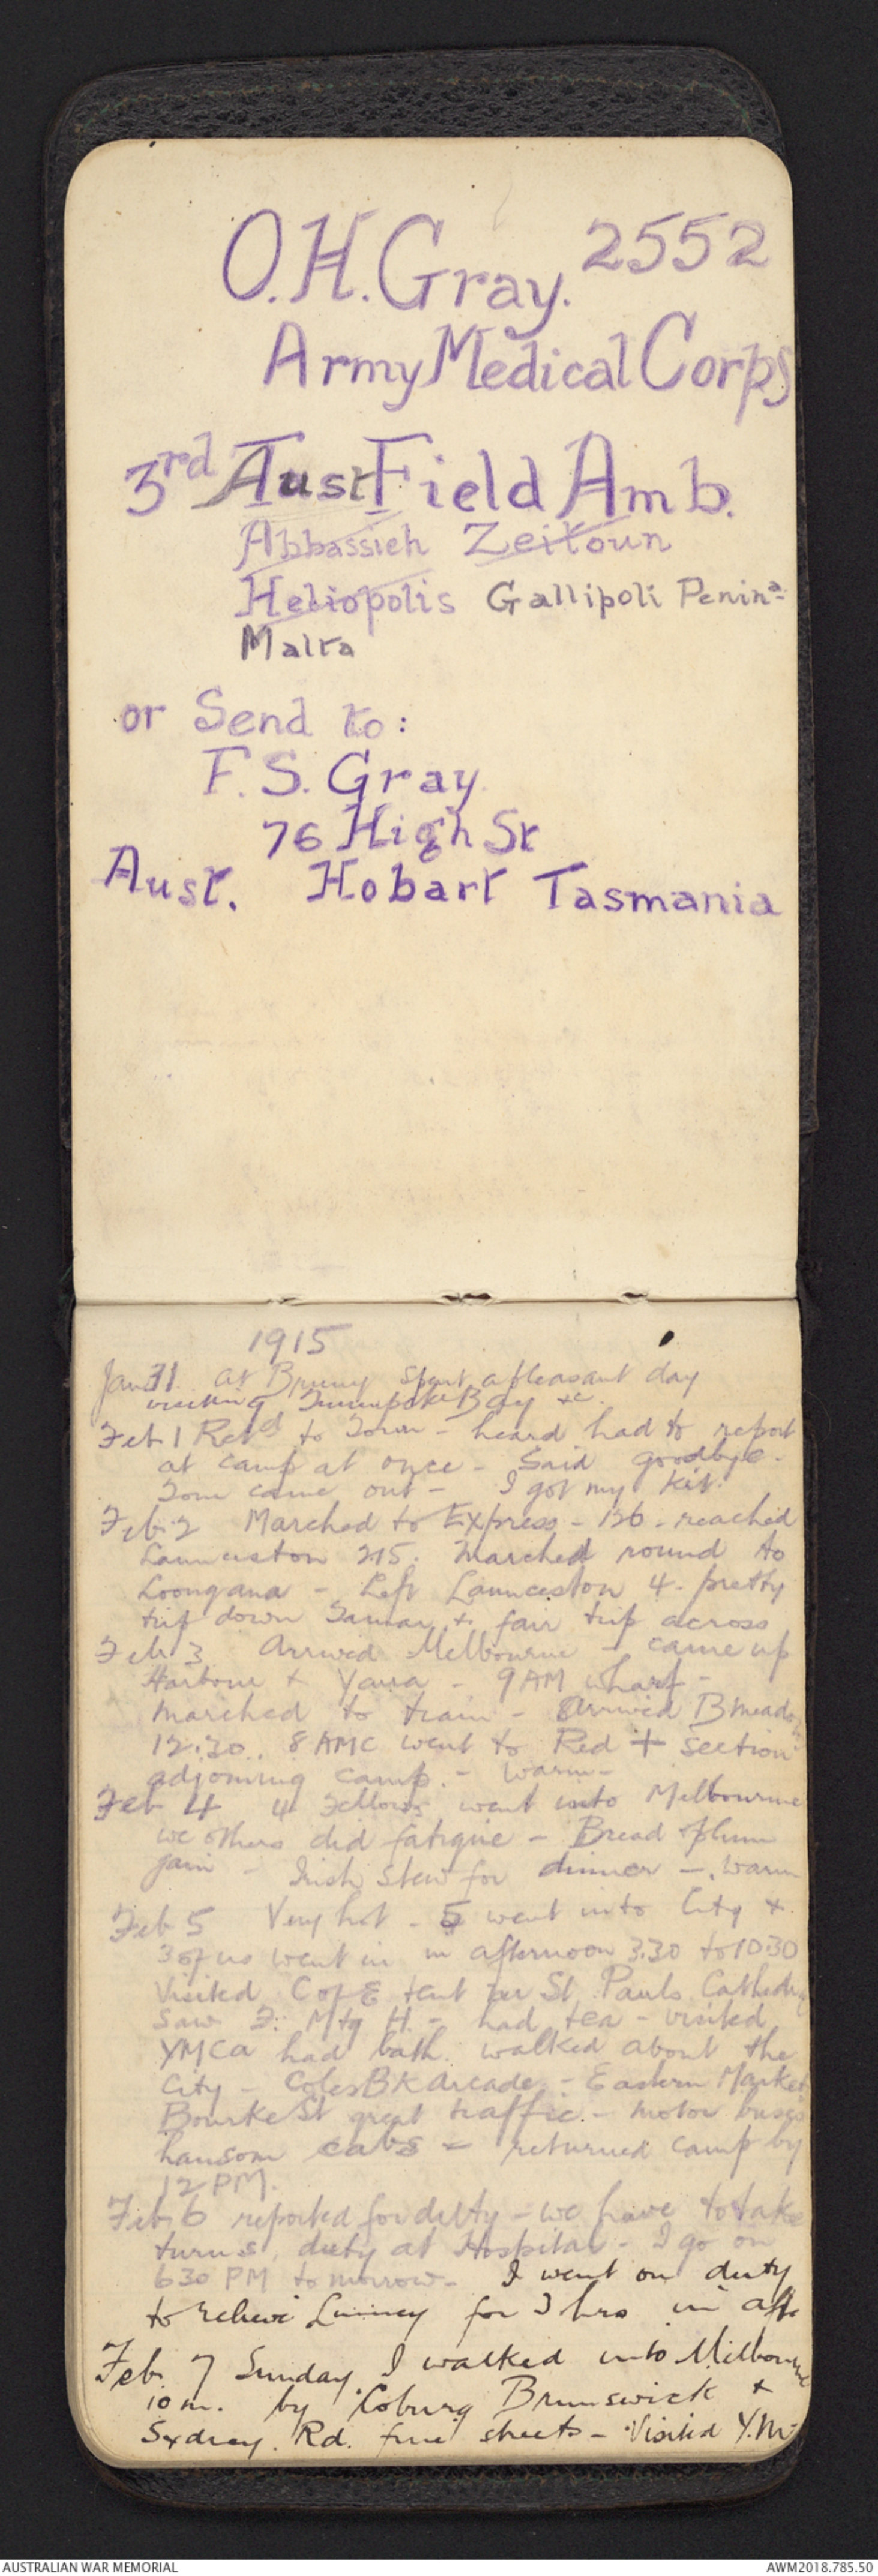 O.H. Gray. 2552
Army Medical Corps
3rd Aust Field Amb.
Abbassieh Zeitoun
Heliopolis Gallipoli Penina
Malta
or Send to:
F.S. Gray
76 High St
Aust. Hobart Tasmania
1915
Jan 31 at Bruny spent a pleasant day
Bay &c
Feb 1 Retd to Town - heard had to report
at camp at once - Said goodbye -
Tom came out - I got my kit.
Feb. 2 Marched to Express - 126 - reached
Launceston 215. Marched round to
Loongana - Left Launceston 4. pretty
trip down Tamar & fair trip across
Feb. 3 Arrived Melbourne - came up
Harbour & Yarra - 9 AM wharf -
marched to train - arrived Bmeadow
12.30. 8 AMC went to Red + section
adjoining camp. - Warm -
Feb 4 4 Fellows went into Melbourne
we others did fatigue - Bread & plum
jam - Irish Stew for dinner - warm
Feb 5 Very hot - 5 went into City &
3 of us went in in afternoon 3.30 to 10.30
Visited C of E tent St Pauls Cathedral
Saw Mtg H - had tea - visited
YMCA had bath. walked about the
City - Coles BK Arcade - Eastern Market
Bourke St great traffic - motor buses
hansom cabs - returned camp by
12 PM.
Feb 6 reported for duty - we have to take
turns, duty at Hospital - I go on
630 PM tomorrow - I went on duty
to relieve for 3 hrs in aft
Feb. 7 Sunday. I walked into Melbourne
10 m. by Coburg Brunswick &
Sydney. Rd. fine streets - Visited Y.M
AUSTRALIAN WAR MEMORIAL
AWM2018.785.50